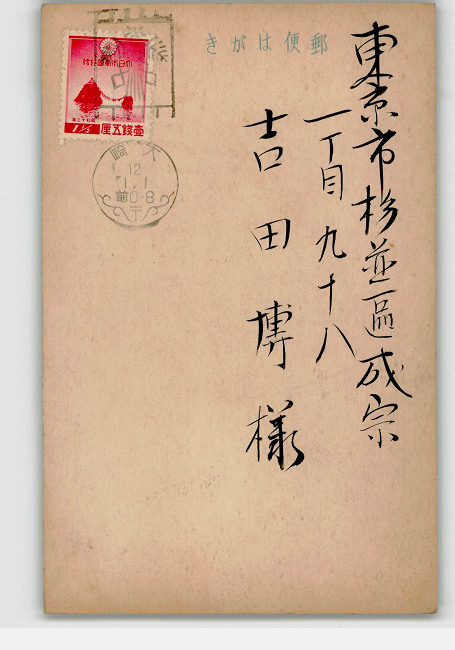 きがは便郵
東京市杉並區成宗
一丁目九十八
吉田博様
大日本帝國郵便
壹錢五厘
1½
大崎
12
1.1
前0-8